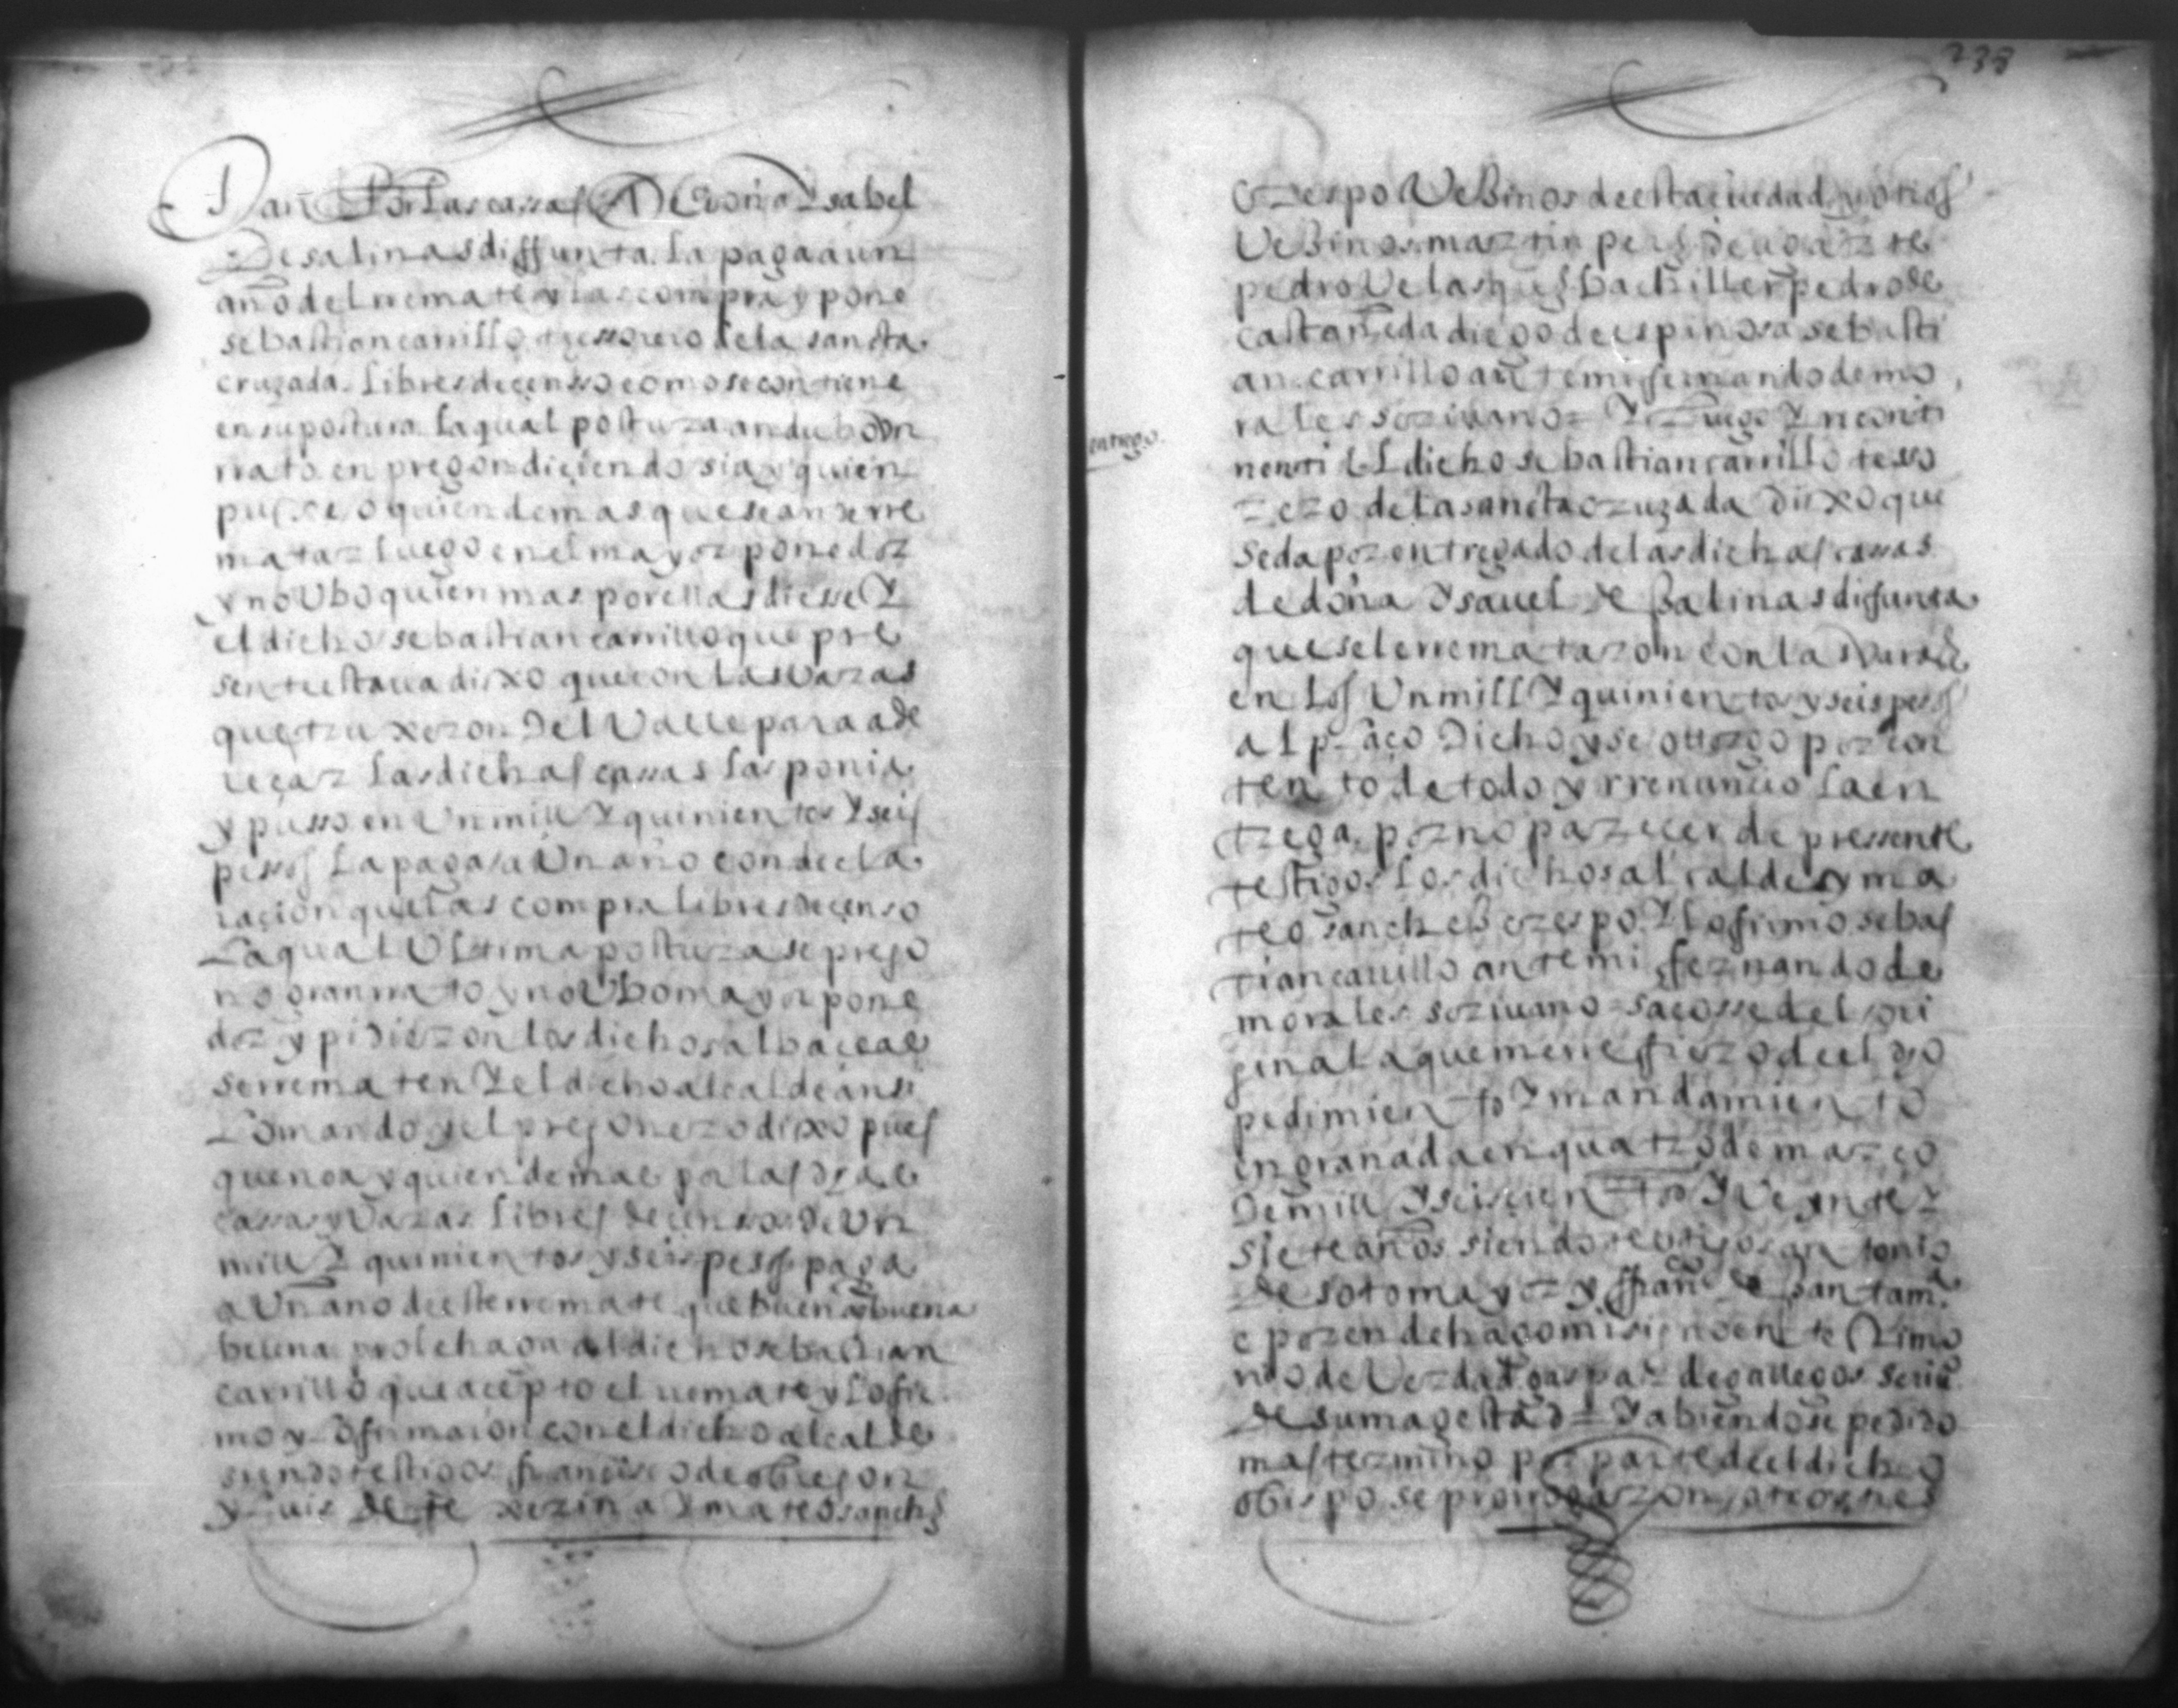 Dan Por las cassas De Doña Ysabel
De salinas diffunta. la paga a un
año del rremate y las compra y pone
sebastian carrillo thessorero de la sancta
cruzada. libres de çensso como se contiene
en su postura. la qual postura andubo Vn
rrato en pregon diçiendo si ay quien
puje o quien de mas que se an de rre
matar luego en el mayor ponedor
y no Vbo quien mas por ellas diesse Y
el dicho sebastian carrillo que pre
sente estaua dixo que con las Varas
que truxeron Del Valle para ade
reçar las dichas cassas las ponia
y pusso en Vn mill Y quinientos Y seis
pessos la paga a Vn año con decla
raçion que las compra libres de çenso
La qual Vltima postura se prego
no gran rrato y no Vbo mayor pone
dor y pidieron los dichos albaceas
se rrematen Y el dicho alcalde ansi
Lo mando y el pregonero dixo pues
que no ay quien de mas por las dhas
cassas y Varas libres de çensso De Vn
mill Y quinientos y seis pesos paga
a Vn año de este rremate que buena buena
buena prol e haga al dicho sebastian
carrillo que açepto el rremate y lo fir
mo y lo firmaron con el dicho alcalde
siendo testigos françisco de obregon
y Luis De texerina Y mateo sanches
238
Crespo Vezinos de esta ciudad y otros
Vezinos martin peres de ugarte
pedro Velasques bachiller pedro de
castañeda diego de espinosa sebasti
an carrillo ante mi fernando de mo
rales escriuano = Y Luego Yn conti
entrego
nenti El dicho sebastian carrillo teso
rero de la sancta cruzada Dixo que
se da por entregado de las dichas cassas
de doña Ysauel de Salinas diffunta
que se le rremataron con las Varas
en los Vn mill Y quinientos y seis pesos
al plaço Dicho y se ottorgo por con
tento de todo y rrenunçio la en
trega por no pareçer de pressente
testigos los dichos alcalde y ma
teo sanchez crespo. Y lo firmo sebas
tian carrillo ante mi fernando de
morales scriuano = sacosse del ori
ginal a que me rrefiero de el dho
pedimiento Y mandamiento
en granada en quatro de março
De mill Y seiscientos Y Veynte Y
siete años siendo testigos antonio
de sotomayor y ffranco de santam.a
e por ende hago mi signo en testimo
nio de Verdad gaspar de gallegos scriuo
de su magestad = Y abiendose pedido
mas termino por parte de el dicho
obispo se prorrogaron otros tres